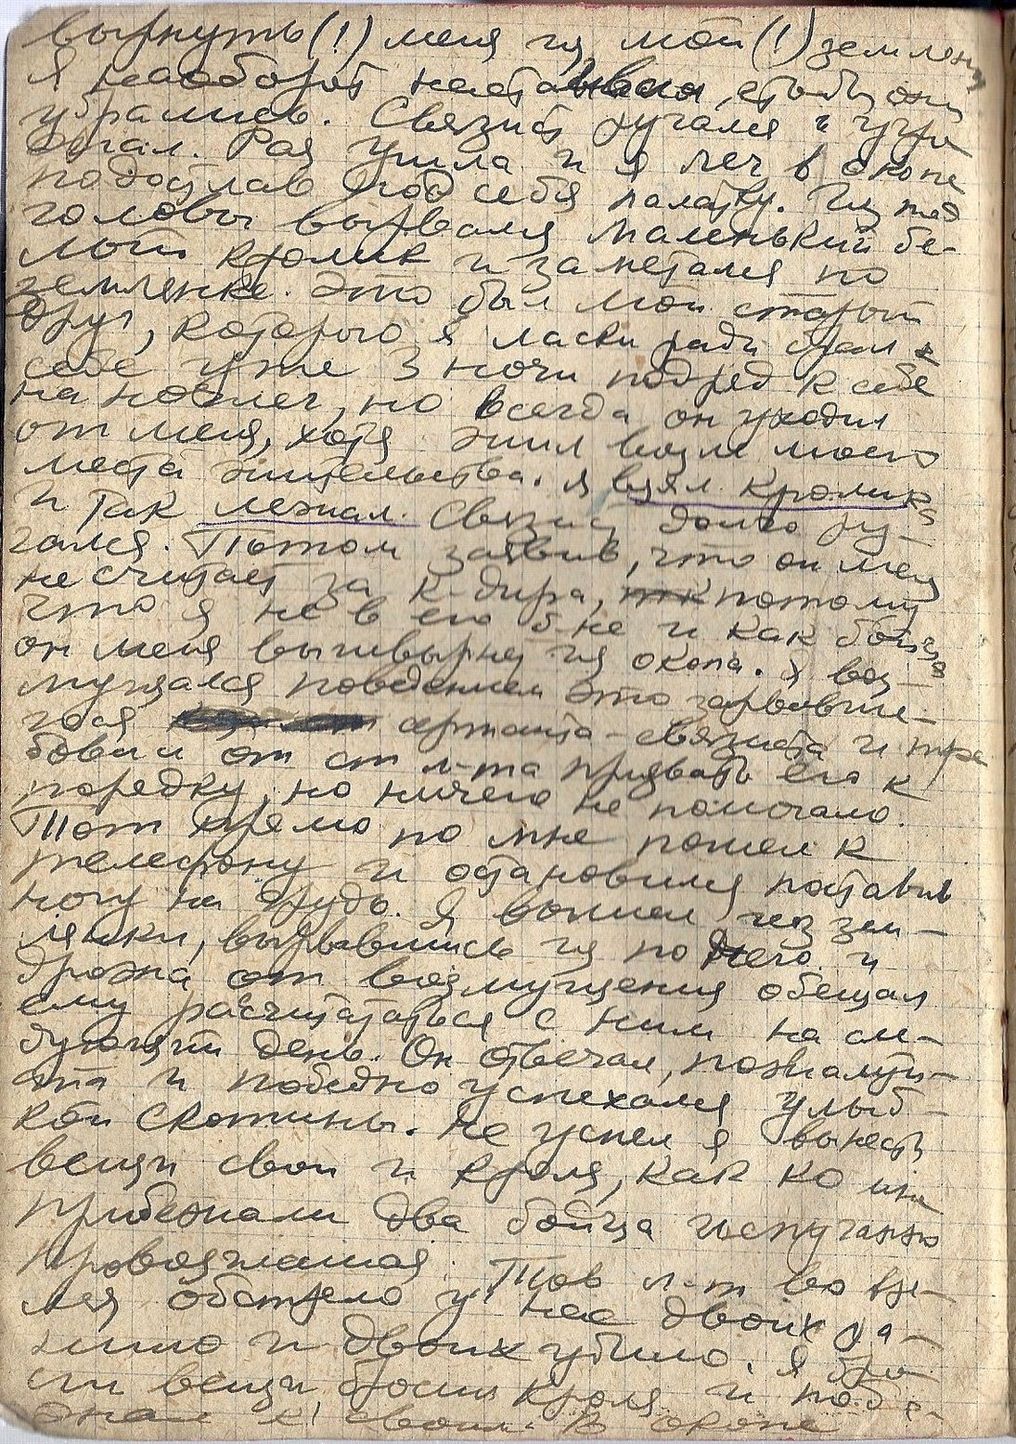 вырнуть (!) меня из мой (!) землянки
Я наоборот настаивал, чтобы они
убрались. Связист ругался и угро-
жал. Рая ушла и я лег в окопе
подослав под себя палатку. Из под
головы вырвался маленький бе-
лый кролик и заметался по
землянке. Это был мой старый
друг, которого я ласки ради брал к
себе уже 3 ночи подред к себе
на ноблег, но всегда он уходил
от меня, хотя жил возле моего
места жительства. Я взял кролика
и так лежал. Связист долго ру-
гался. Потом заявив, что он меня
не считает за к-дира, потому
что я не в его б-не и как бойца
он меня вышвырнет из окопа. Я воз-
мущался поведением это зарвавше-
гося сержанта-связиста и тре
бовал от ст л-та призвать его к
порядку, но ничего не помогало.
Тот прямо по мне пошел к
телефону и остановился поставив
ногу на грудь. Я вышел из зем-
лянки, вырвавшись из под него и
дрожа от возмущения обещал
ему расчитаться с ним на сле-
дующий день. Он отвечал, пожалуй-
ста и победно усмехался улыб-
кой скотины. Не успел я вынести
вещи свои и кроля, как ко мне
прибежали два бойца испуганно
провозглашая: Тов л-т во вре-
мя обстрела у нас двоих ра-
нило и двоих убило. Я бро
сил вещи, бросил кроля и побе-
жал к своим. В окопе